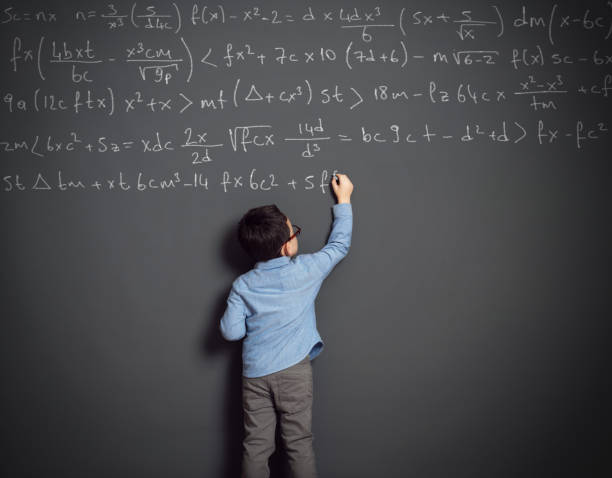 Sc = nx n = 3/x³ (5/d4c) f(x) - x² - 2 = d x 4dx³/6 (5x + 5/√x) dm(x - 6c)
fx(4bxt/6c - x³cm/√9p) < fx² + 7c x 10 (7d+6) - m√6-2 f(x) sc - 6x
9a (12c ftx) x² + x > mf (Δ + cx³) st > 18m - fz 64c x x²-x³/tm + cf
zm < 6xc² + 5z = xdc 2x/2d √fcx 14d/d³ = bc9ct - d² + d > fx - fc²
st Δ tm + xt 6cm³ - 14 fx6c² + 5f